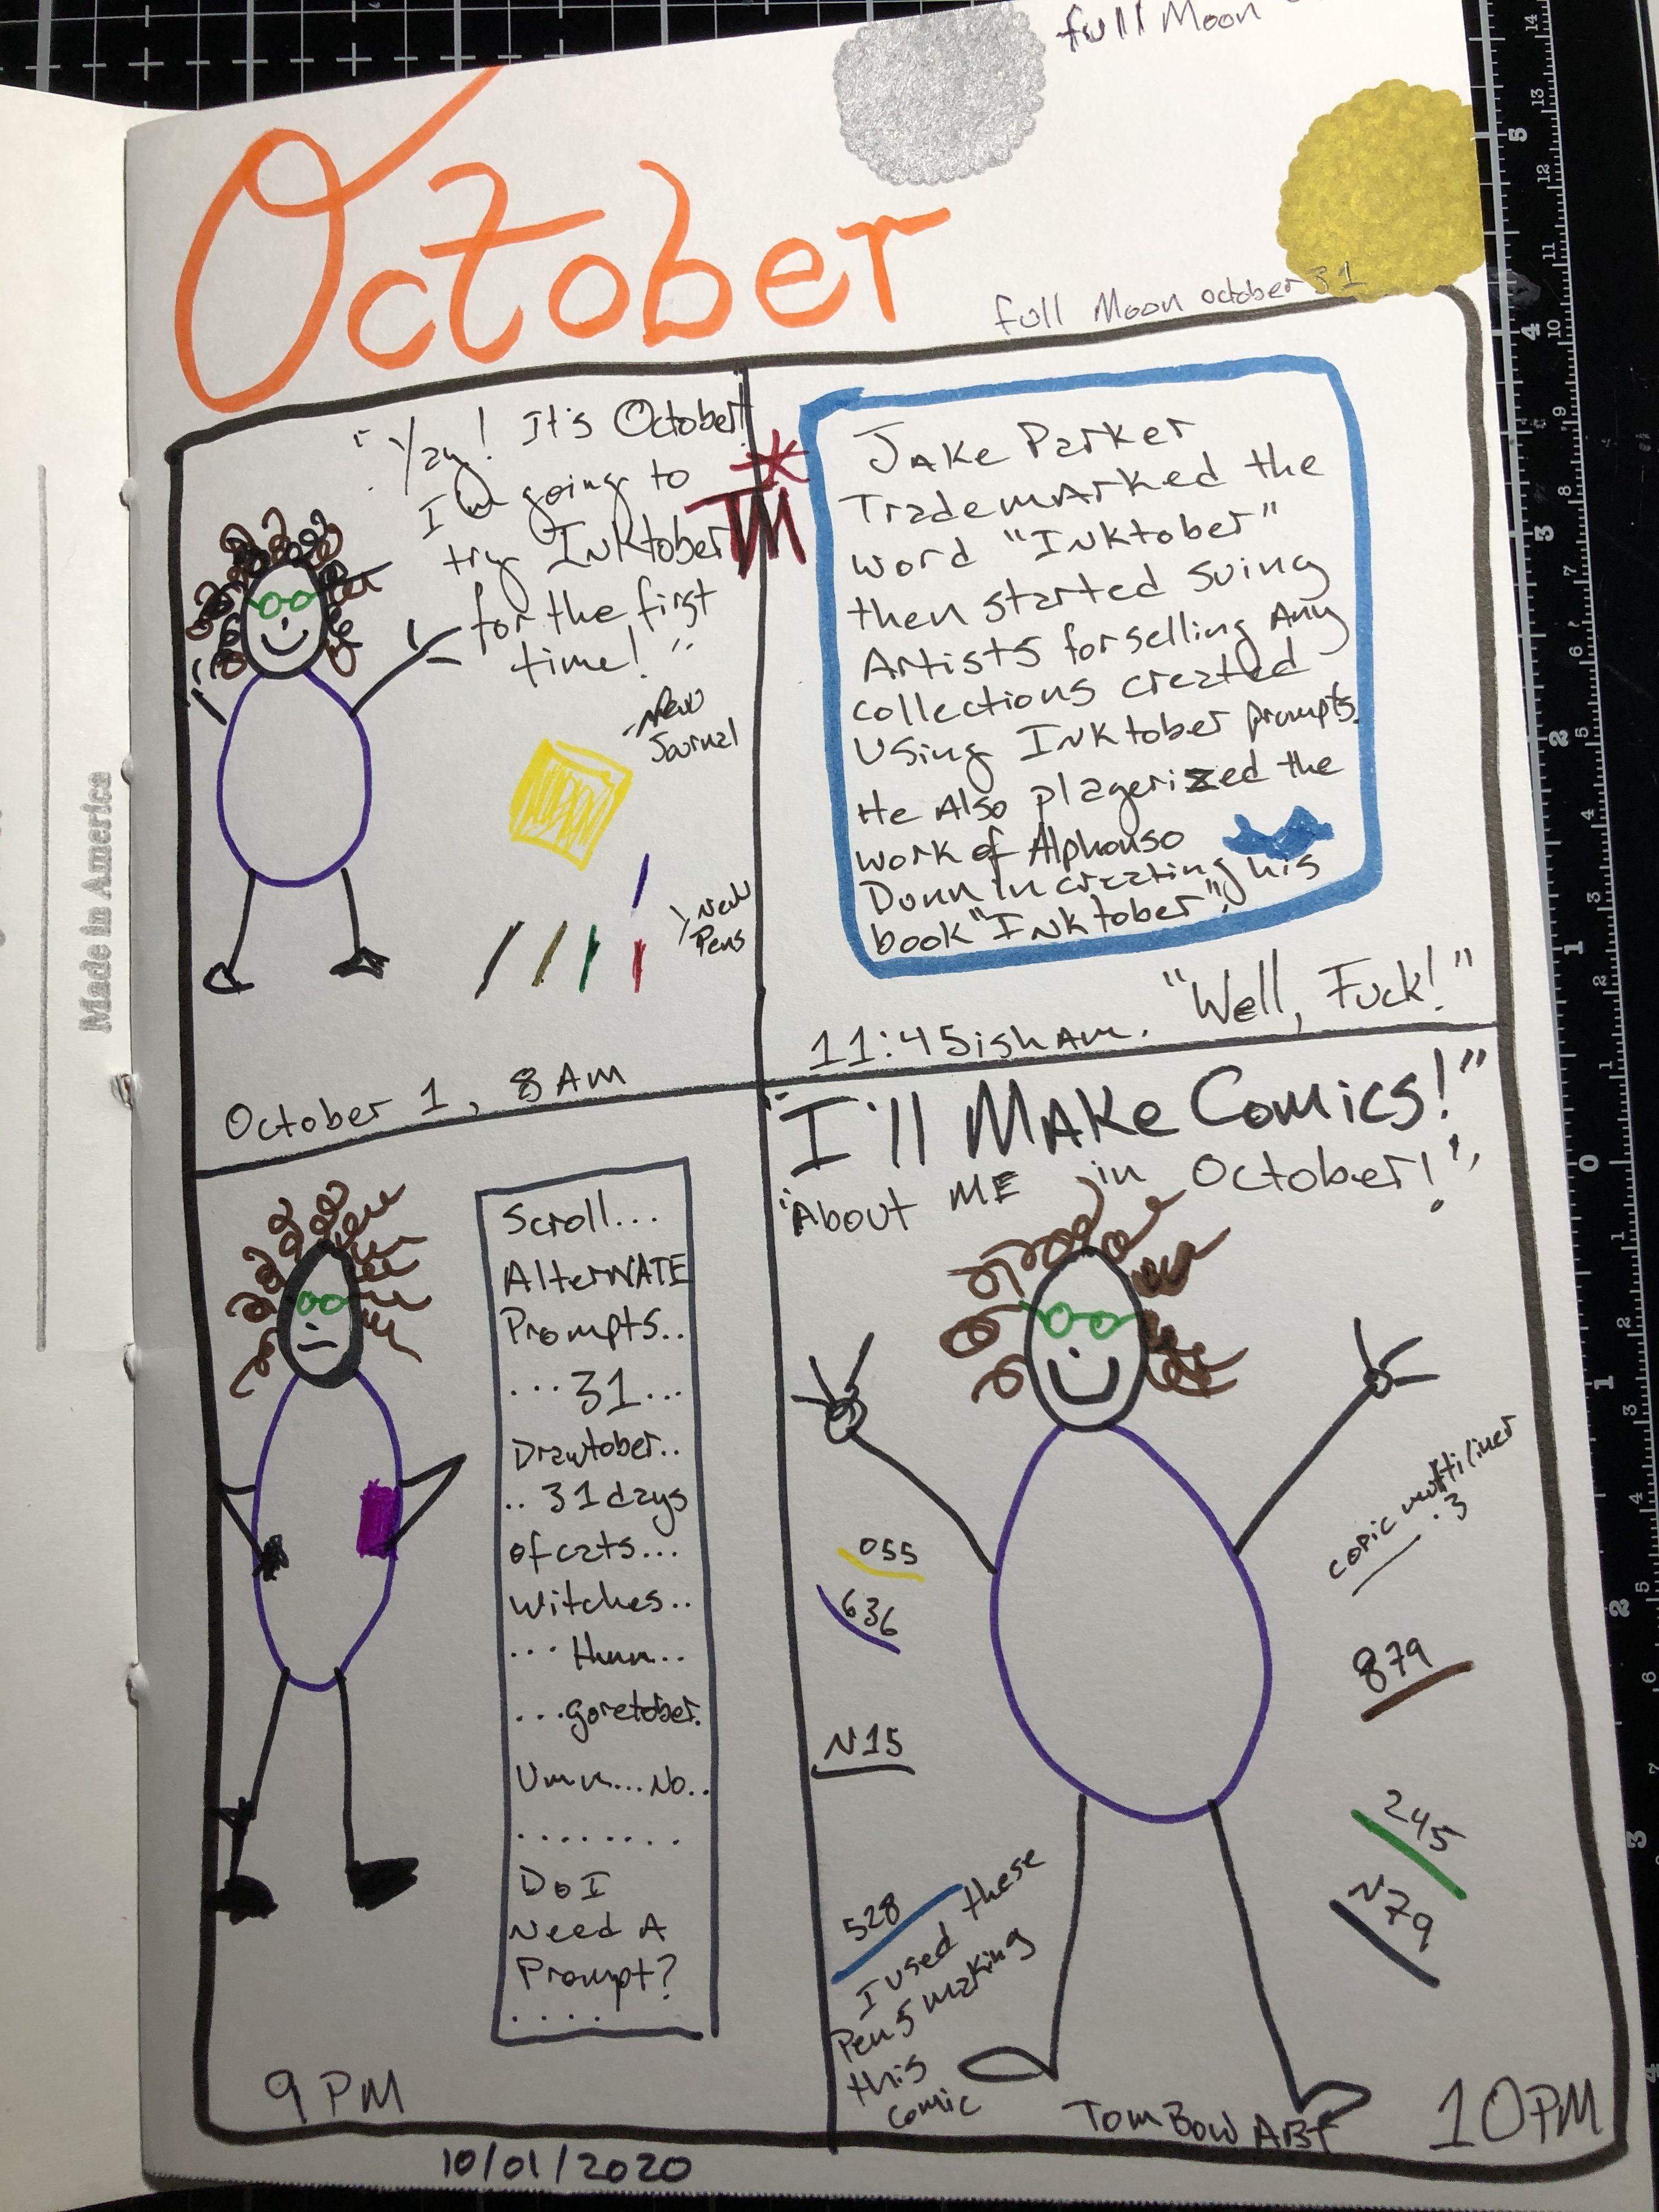 full Moon
October
full Moon october 31
"Yay! It's October!
I'm going to
try Inktober
for the first
time!"
* TM
New
Journal
New
Pens
October 1, 8AM
Jake Parker
Trademarked the
word "Inktober"
then started suing
Artists for selling Any
collections created
Using Inktober prompts.
He Also plagerized the
work of Alphonso
Dunn in creating his
book "Inktober".
"Well, Fuck!"
11:45ish Am.
Scroll...
AlterNATE
Prompts..
...31...
Drawtober..
..31 days
of cats...
Witches..
...Hmm...
...goretober.
Umm...No..
........
Do I
Need A
Prompt?
....
9 PM
"I'll Make Comics!"
"About ME in October!"
055
636
N15
528
I used these
Pens making
this
comic
copic multiliner
.3
879
245
N79
TomBow ABT
10PM
10/01/2020
Made in America
5
14
13
12
11
4
10
9
8
3
7
6
2
5
4
3
1
2
1
0
1
1
2
3
4
2
5
6
7
3